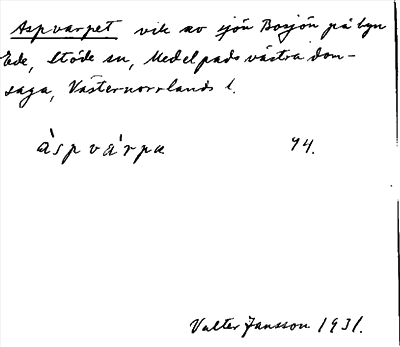 Aspvarpet vik av sjön Bosjön på byn
Ede, Stöde sn, Medelpads västra dom-
saga, Västernorrlands l.
àspvárpa 94.
Valter Jansson 1931.